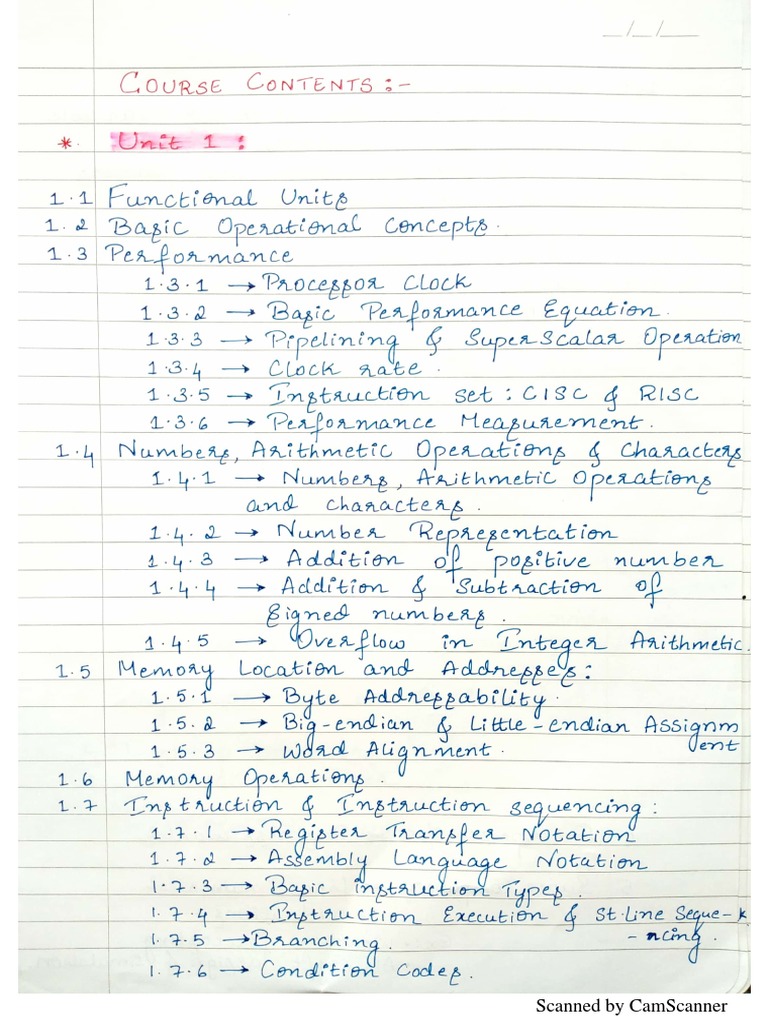 __/__/____
COURSE CONTENTS :-
* Unit 1 :
1.1 Functional Units
1.2 Basic Operational Concepts.
1.3 Performance
1.3.1 → Processor Clock
1.3.2 → Basic Performance Equation.
1.3.3 → Pipelining & SuperScalar Operation
1.3.4 → Clock rate.
1.3.5 → Instruction set : CISC & RISC
1.3.6 → Performance Measurement.
1.4 Numbers, Arithmetic Operations & Characters
1.4.1 → Numbers, Arithmetic Operations
and characters.
1.4.2 → Number Representation
1.4.3 → Addition of positive number
1.4.4 → Addition & Subtraction of
Signed numbers.
1.4.5 → Overflow in Integer Arithmetic.
1.5 Memory Location and Addresses :
1.5.1 → Byte Addressability.
1.5.2 → Big-endian & Little-endian Assignm
ent
1.5.3 → Word Alignment.
1.6 Memory Operations.
1.7 Instruction & Instruction sequencing :
1.7.1 → Register Transfer Notation
1.7.2 → Assembly Language Notation
1.7.3 → Basic instruction Types.
1.7.4 → Instruction Execution & St. Line Seque-
-ncing.
1.7.5 → Branching.
1.7.6 → Condition Codes.
Scanned by CamScanner